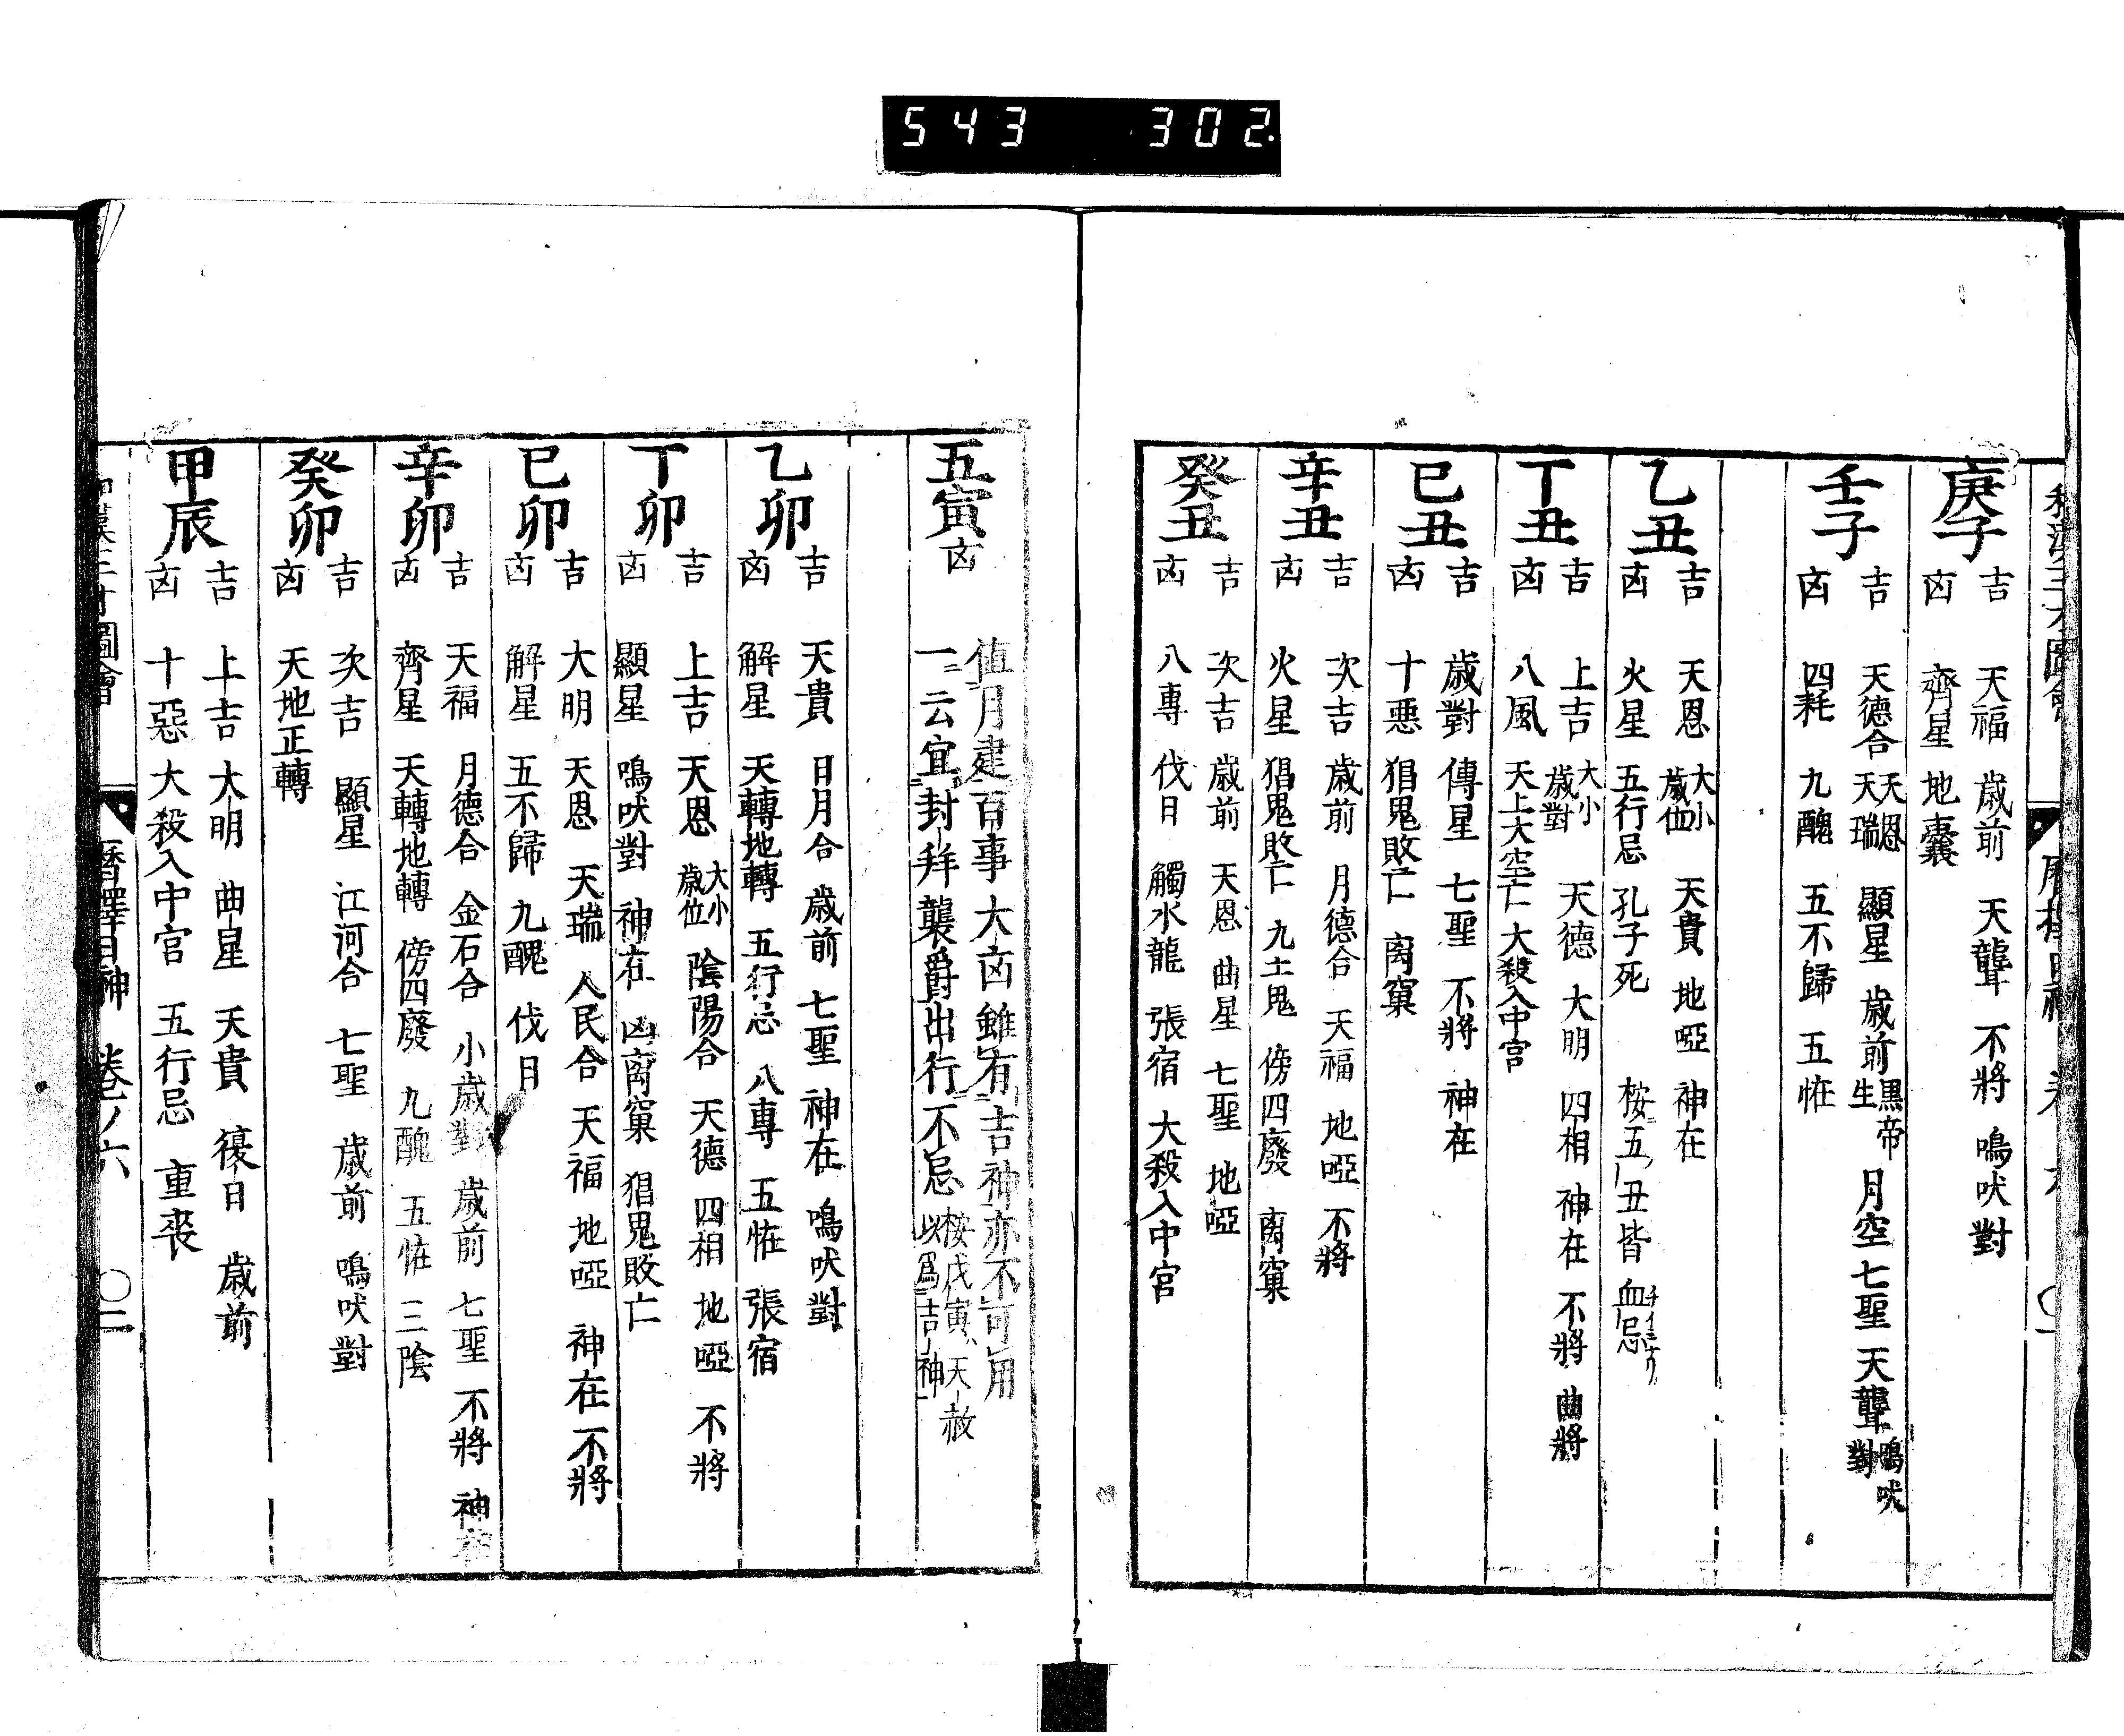 543 302.
庚子 吉 天福 歳前 天聾 不將 鳴吠對
凶 齊星 地囊
壬子 吉 天德合 天恩 天瑞 顯星 歳前 黒帝生 月空 七聖 天聾 鳴吠對
凶 四耗 九醜 五不歸 五恠
乙丑 吉 天恩 大小歳位 天貴 地啞 神在
凶 火星 五行忌 孔子死 桉五丑皆血忌
丁丑 吉 上吉 大小歳對 天德 大明 四相 神在 不將 曲將
凶 八風 天上大空亡 大殺入中宮
巳丑 吉 歳對 傳星 七聖 不將 神在
凶 十悪 猖鬼敗亡 离窠
辛丑 吉 次吉 歳前 月德合 天福 地啞 不將
凶 火星 猖鬼敗亡 九土鬼 傍四廢 离窠
癸丑 吉 次吉 歳前 天恩 曲星 七聖 地啞
凶 八專 伐日 觸水龍 張宿 大殺入中宮
五寅 凶 值月建百事大凶雖有吉神亦不可用
一云宜封拜襲爵出行不忌 桉戊寅天赦以爲吉神
乙卯 吉 天貴 日月合 歳前 七聖 神在 鳴吠對
凶 解星 天轉地轉 五行忌 八專 五恠 張宿
丁卯 吉 上吉 天恩 大小歳位 陰陽合 天德 四相 地啞 不將
凶 顯星 鳴吠對 神在 凶离窠 猖鬼敗亡
已卯 吉 大明 天恩 天瑞 人民合 天福 地啞 神在 不將
凶 解星 五不歸 九醜 伐日
辛卯 吉 天福 月德合 金石合 小歳對 歳前 七聖 不將 神在
凶 齊星 天轉地轉 傍四廢 九醜 五恠 三陰
癸卯 吉 次吉 顯星 江河合 七聖 歳前 鳴吠對
凶 天地正轉
甲辰 吉 上吉 大明 曲星 天貴 復日 歳前
凶 十惡 大殺入中宮 五行忌 重喪
曆擇日神 卷ノ六 〇二